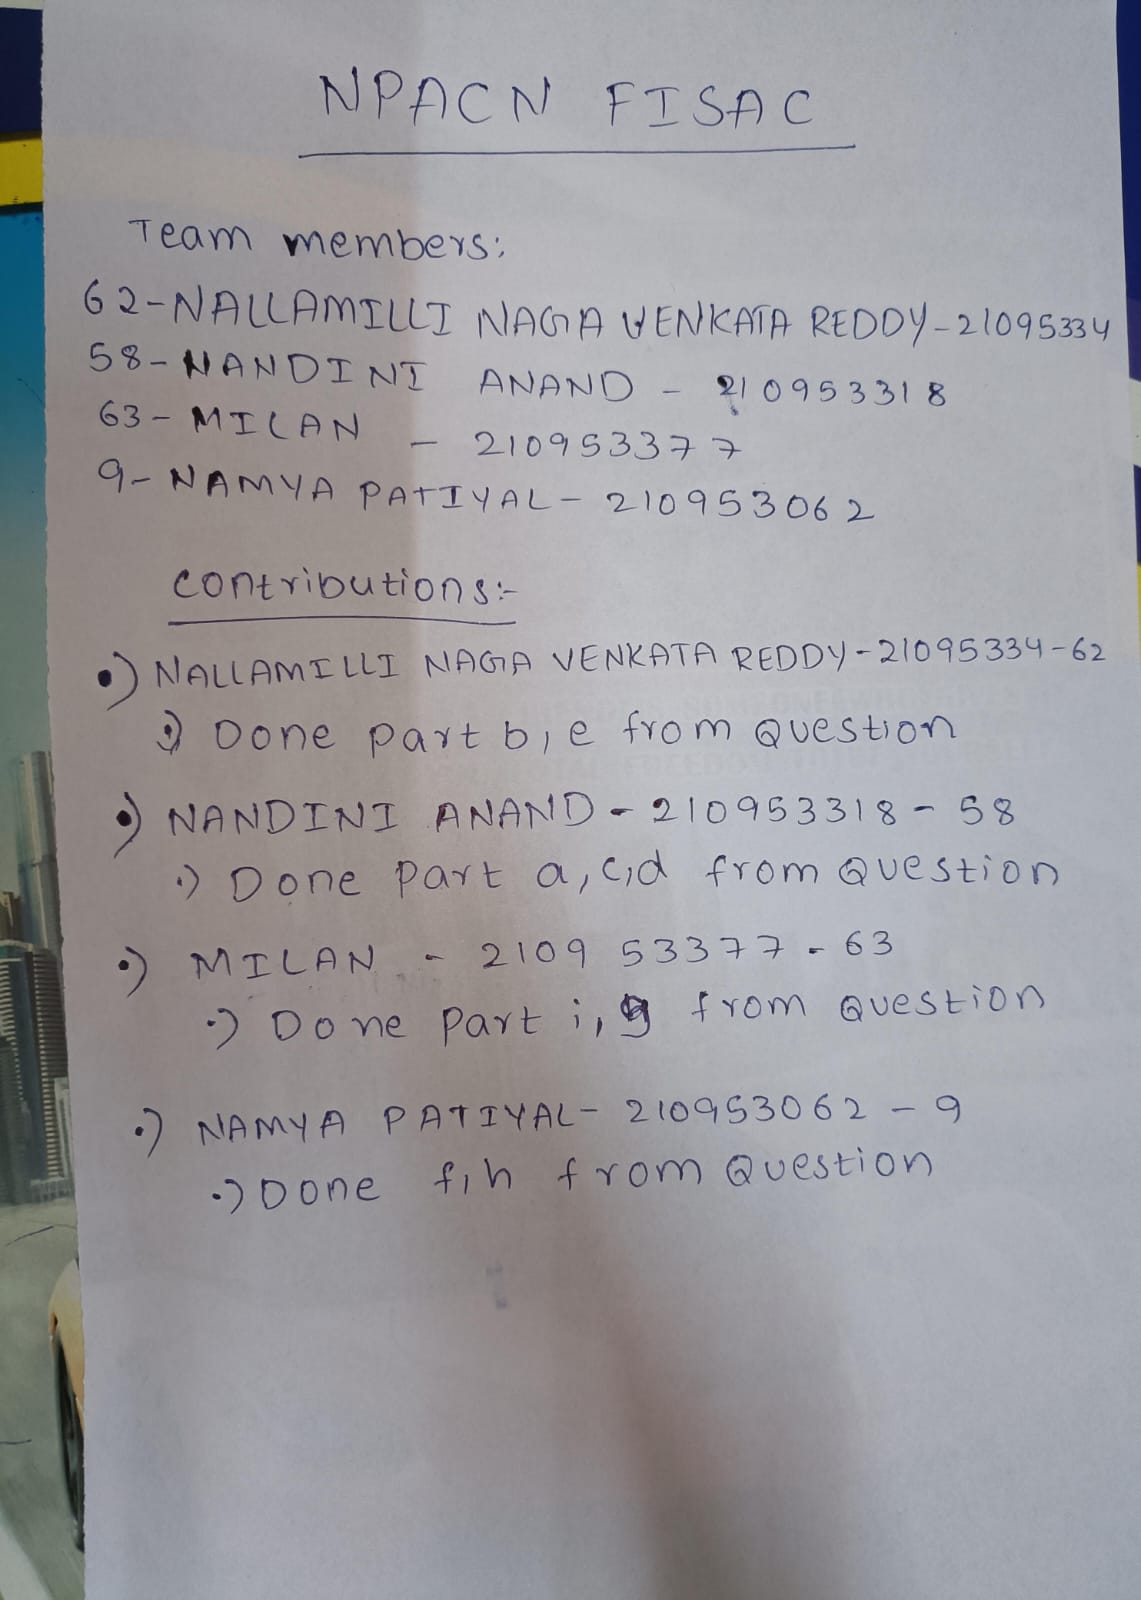 NPACN FISAC
Team members:
62-NALLAMILLI NAGA VENKATA REDDY-21095334
58-NANDINI ANAND - 210953318
63-MILAN - 210953377
9-NAMYA PATIYAL- 210953062
contributions:-
•) NALLAMILLI NAGA VENKATA REDDY-21095334-62
•) Done part b,e from Question
•) NANDINI ANAND-210953318-58
•) Done part a,c,d from Question
•) MILAN - 210953377-63
•) Done part i,g from Question
•) NAMYA PATIYAL- 210953062-9
•) Done f,h from Question